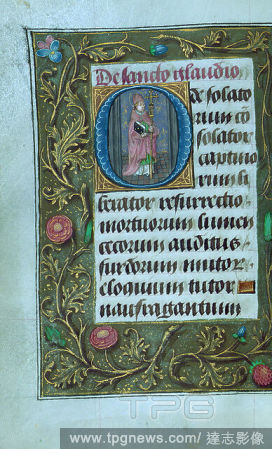 De sancto claudio
O desolato
rum co
solator
captiuo
rum li
berator resurrectio
mortuorum lumen
cecorum auditus
surdorum mutor
eloquium tutor
naufragantium
TPG
www.tpgnews.com/達志影像